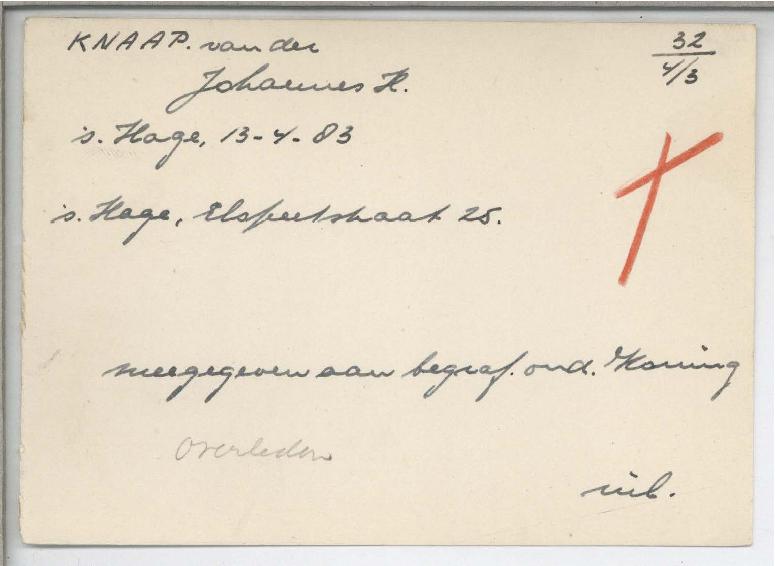 KNAAP. van der
32
4/3
Johannes H.
's. Hage, 13-4-83
's. Hage, Elspeetstraat 25.
meegegeven aan begraf. ond. Koning
overleden
inb.